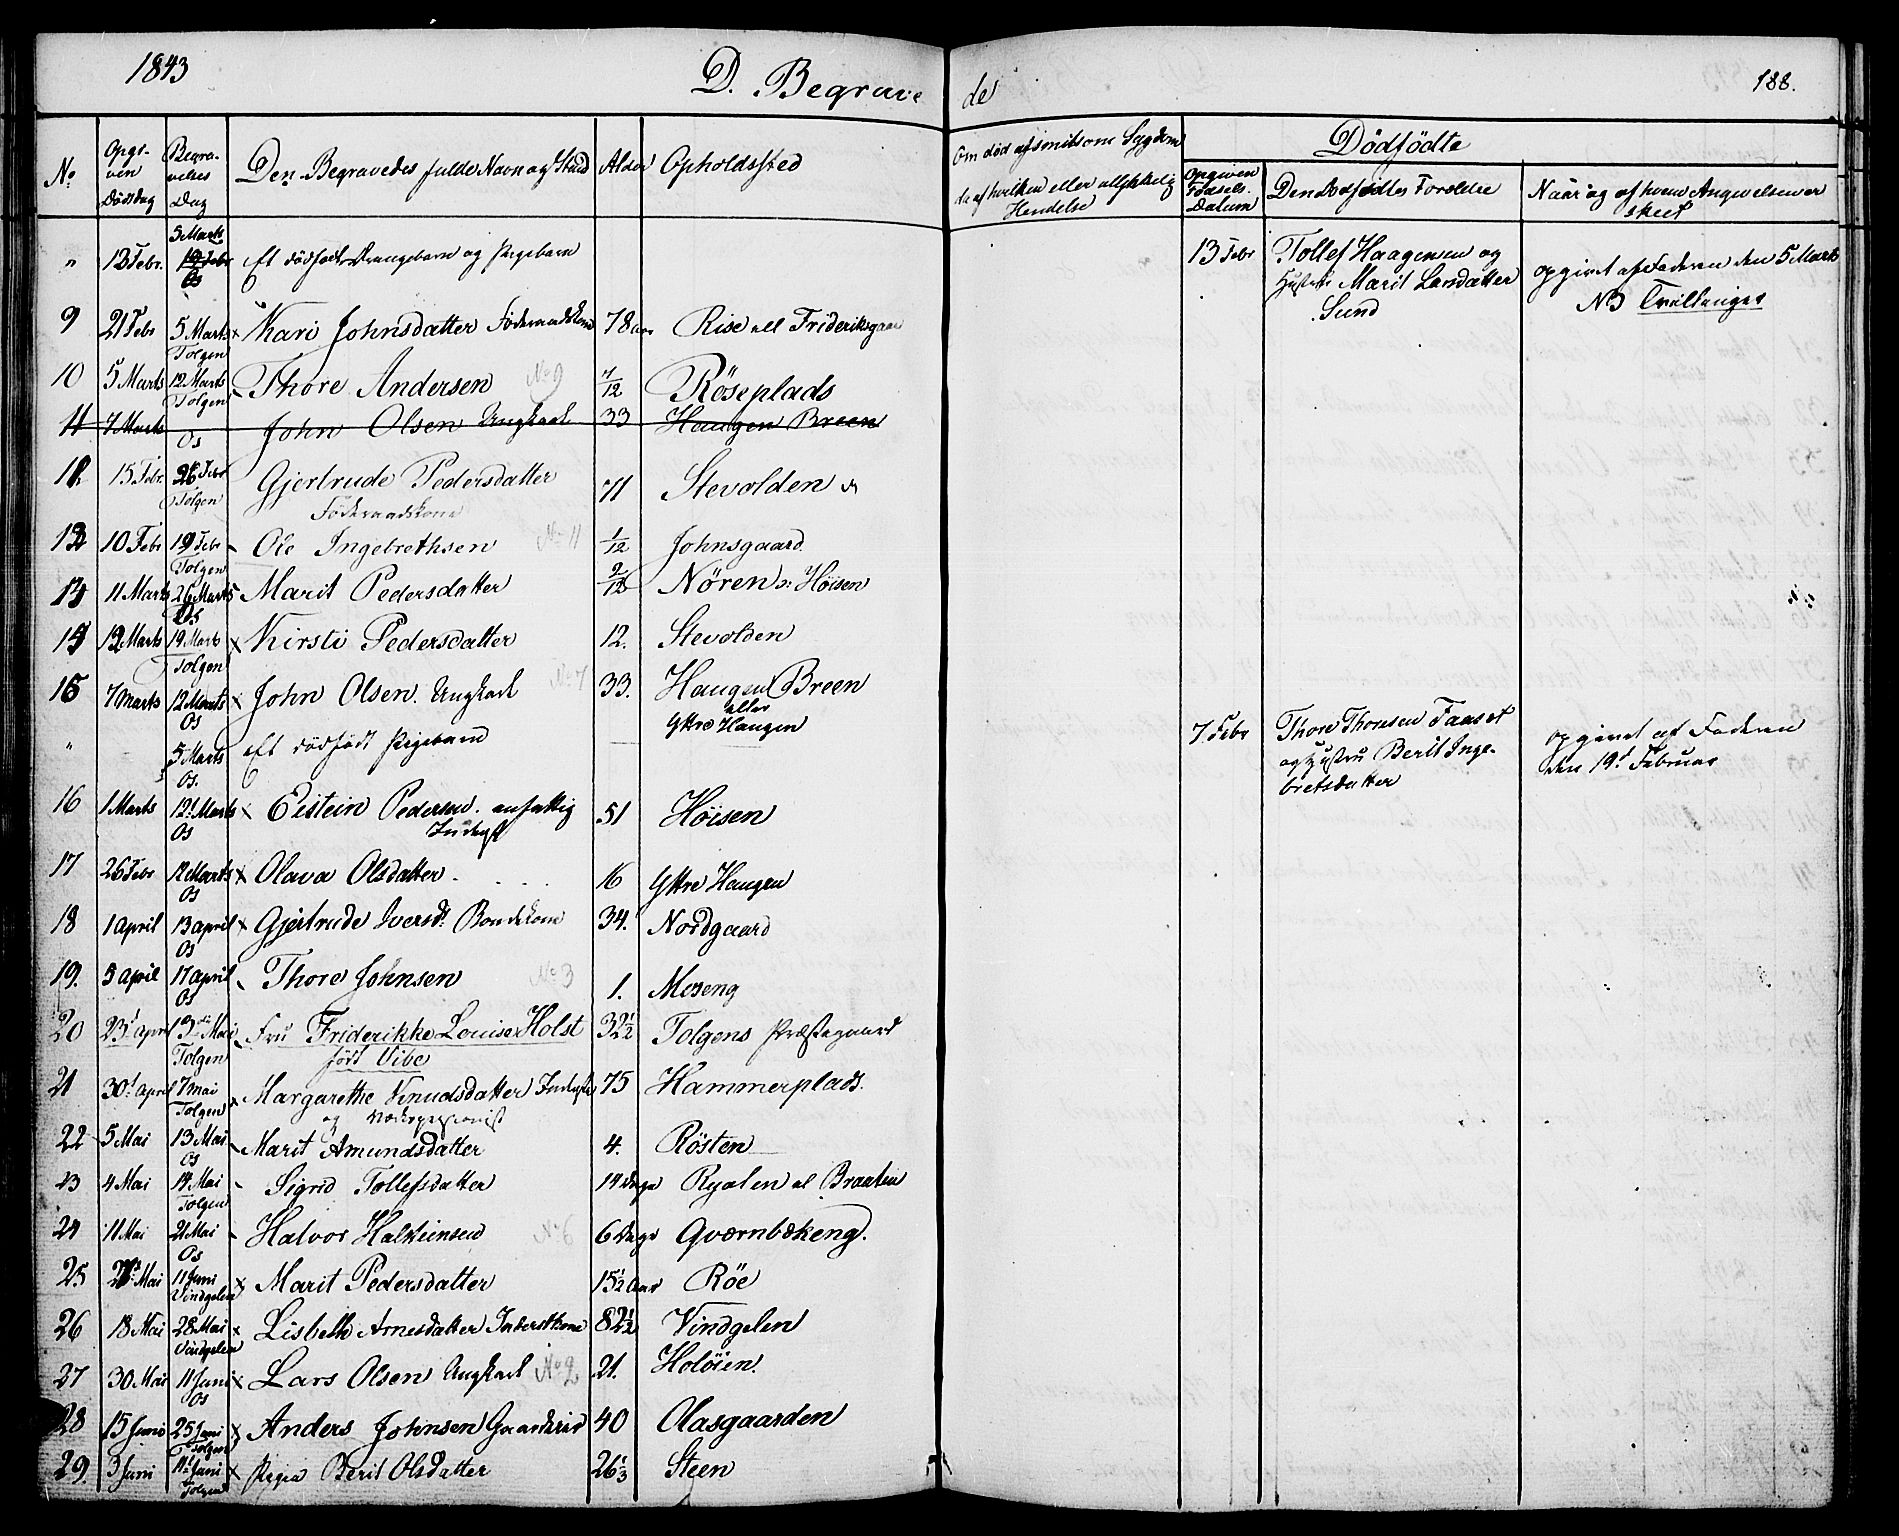 1843 D. Begrave de 188.
No Opgiven Dödsdag Begravelses Dag Den Begravedes fulde Navn og Stand Alder Opholdssted Om död af smitsom Sygdom da af hvilken eller ulykkelig Hendelse
Dödfödte
Opgiven Födsels Datum Den Dödfödtes Forældre Naar og af hvem Angivelsen er skeet
" 13 Febr. 5 Marts Os Et dödfödt Drengebarn og Pigebarn 13 Febr Tollef Haagensen og Hustrue Marit Larsdatter Sund opgivet af Faderen den 5 Marts NB Tvillinger
9 21 Febr 5 Marts Tolgen x Kari Johnsdatter Föderaadskone 78 aar Rise ell Frideriksgaar
10 5 Marts 12 Marts Tolgen Thore Andersen No 9 7/12 Röseplads
11 7 Marts Os John Olsen Ungkarl 33 Haugen Breen
15 Febr. 26 Febr Tolgen Gjertrude Pedersdatter Föderaadskone 71 Stevolden
10 Febr 19 Febr Tolgen Ole Ingebrethsen No 11 1/12 Johnsgaard.
11 Marts 26 Marts Os Marit Pedersdatter 2/12 Nören Höisen
12 Marts 19 Marts Tolgen x Kirsti Pedersdatter 12. Stevolden
7 Marts 12 Marts Os x John Olsen. Ungkarl No 7 33. Haugen Breen eller Yttre Haugen
" 5 Marts Os. Et dödfödt Pigebarn 7 Febr Thore Thoresen Faaset og Hustru Berit Ingebretsdatter opgivet af Faderen den 19d Februar
16 1 Marts 12 Marts Os x Eistein Pedersen. Inderst 51 Höisen
17 26 Febr 12 Marts Os x Olava Olsdatter. 16 Yttre Haugen
18 1 April 13 april Os x Gjertrude Iversdr Bondekone 34. Nordgaard
19. 5 april 17 april Os Thore Johnsen No 3 1. Moseng
20 23 april 13 Mai Tolgen Fru Friderikke Louise Holst född Vibe 32 1/2 Tolgens Præstegaard
21 30 april 7 mai Tolgen Margarethe Knudsdatter og 75 Hammerplads.
22 5 Mai 13 Mai Os Marit Amundsdatter 4. Rösten
23 4 Mai 14 Mai Tolgen Sigrid Tollefsdatter 14 Dage Ryalen el Braaten
24 11 Mai 21 Mai Os Halvor No 6 6 Dage Qværnbekeng.
25 Mai 11 Juni Vindgelen x Marit Pedersdatter 15 1/2 aar Röe
26 18 Mai 28 Mai Vindgelen x Lisbeth Arnesdatter Inderstkone 82 1/2 Vindgelen
27 30 Mai 11 Juni Os x Lars Olsen Ungkarl No 2 21. Holöien.
28 15 Juni 25 Juni Tolgen x Anders Johnsen 40 Olasgaarden
29. 3 Juni 11 Juni Tolgen x Pigen Berit Olsdatter 26 1/3 Steen